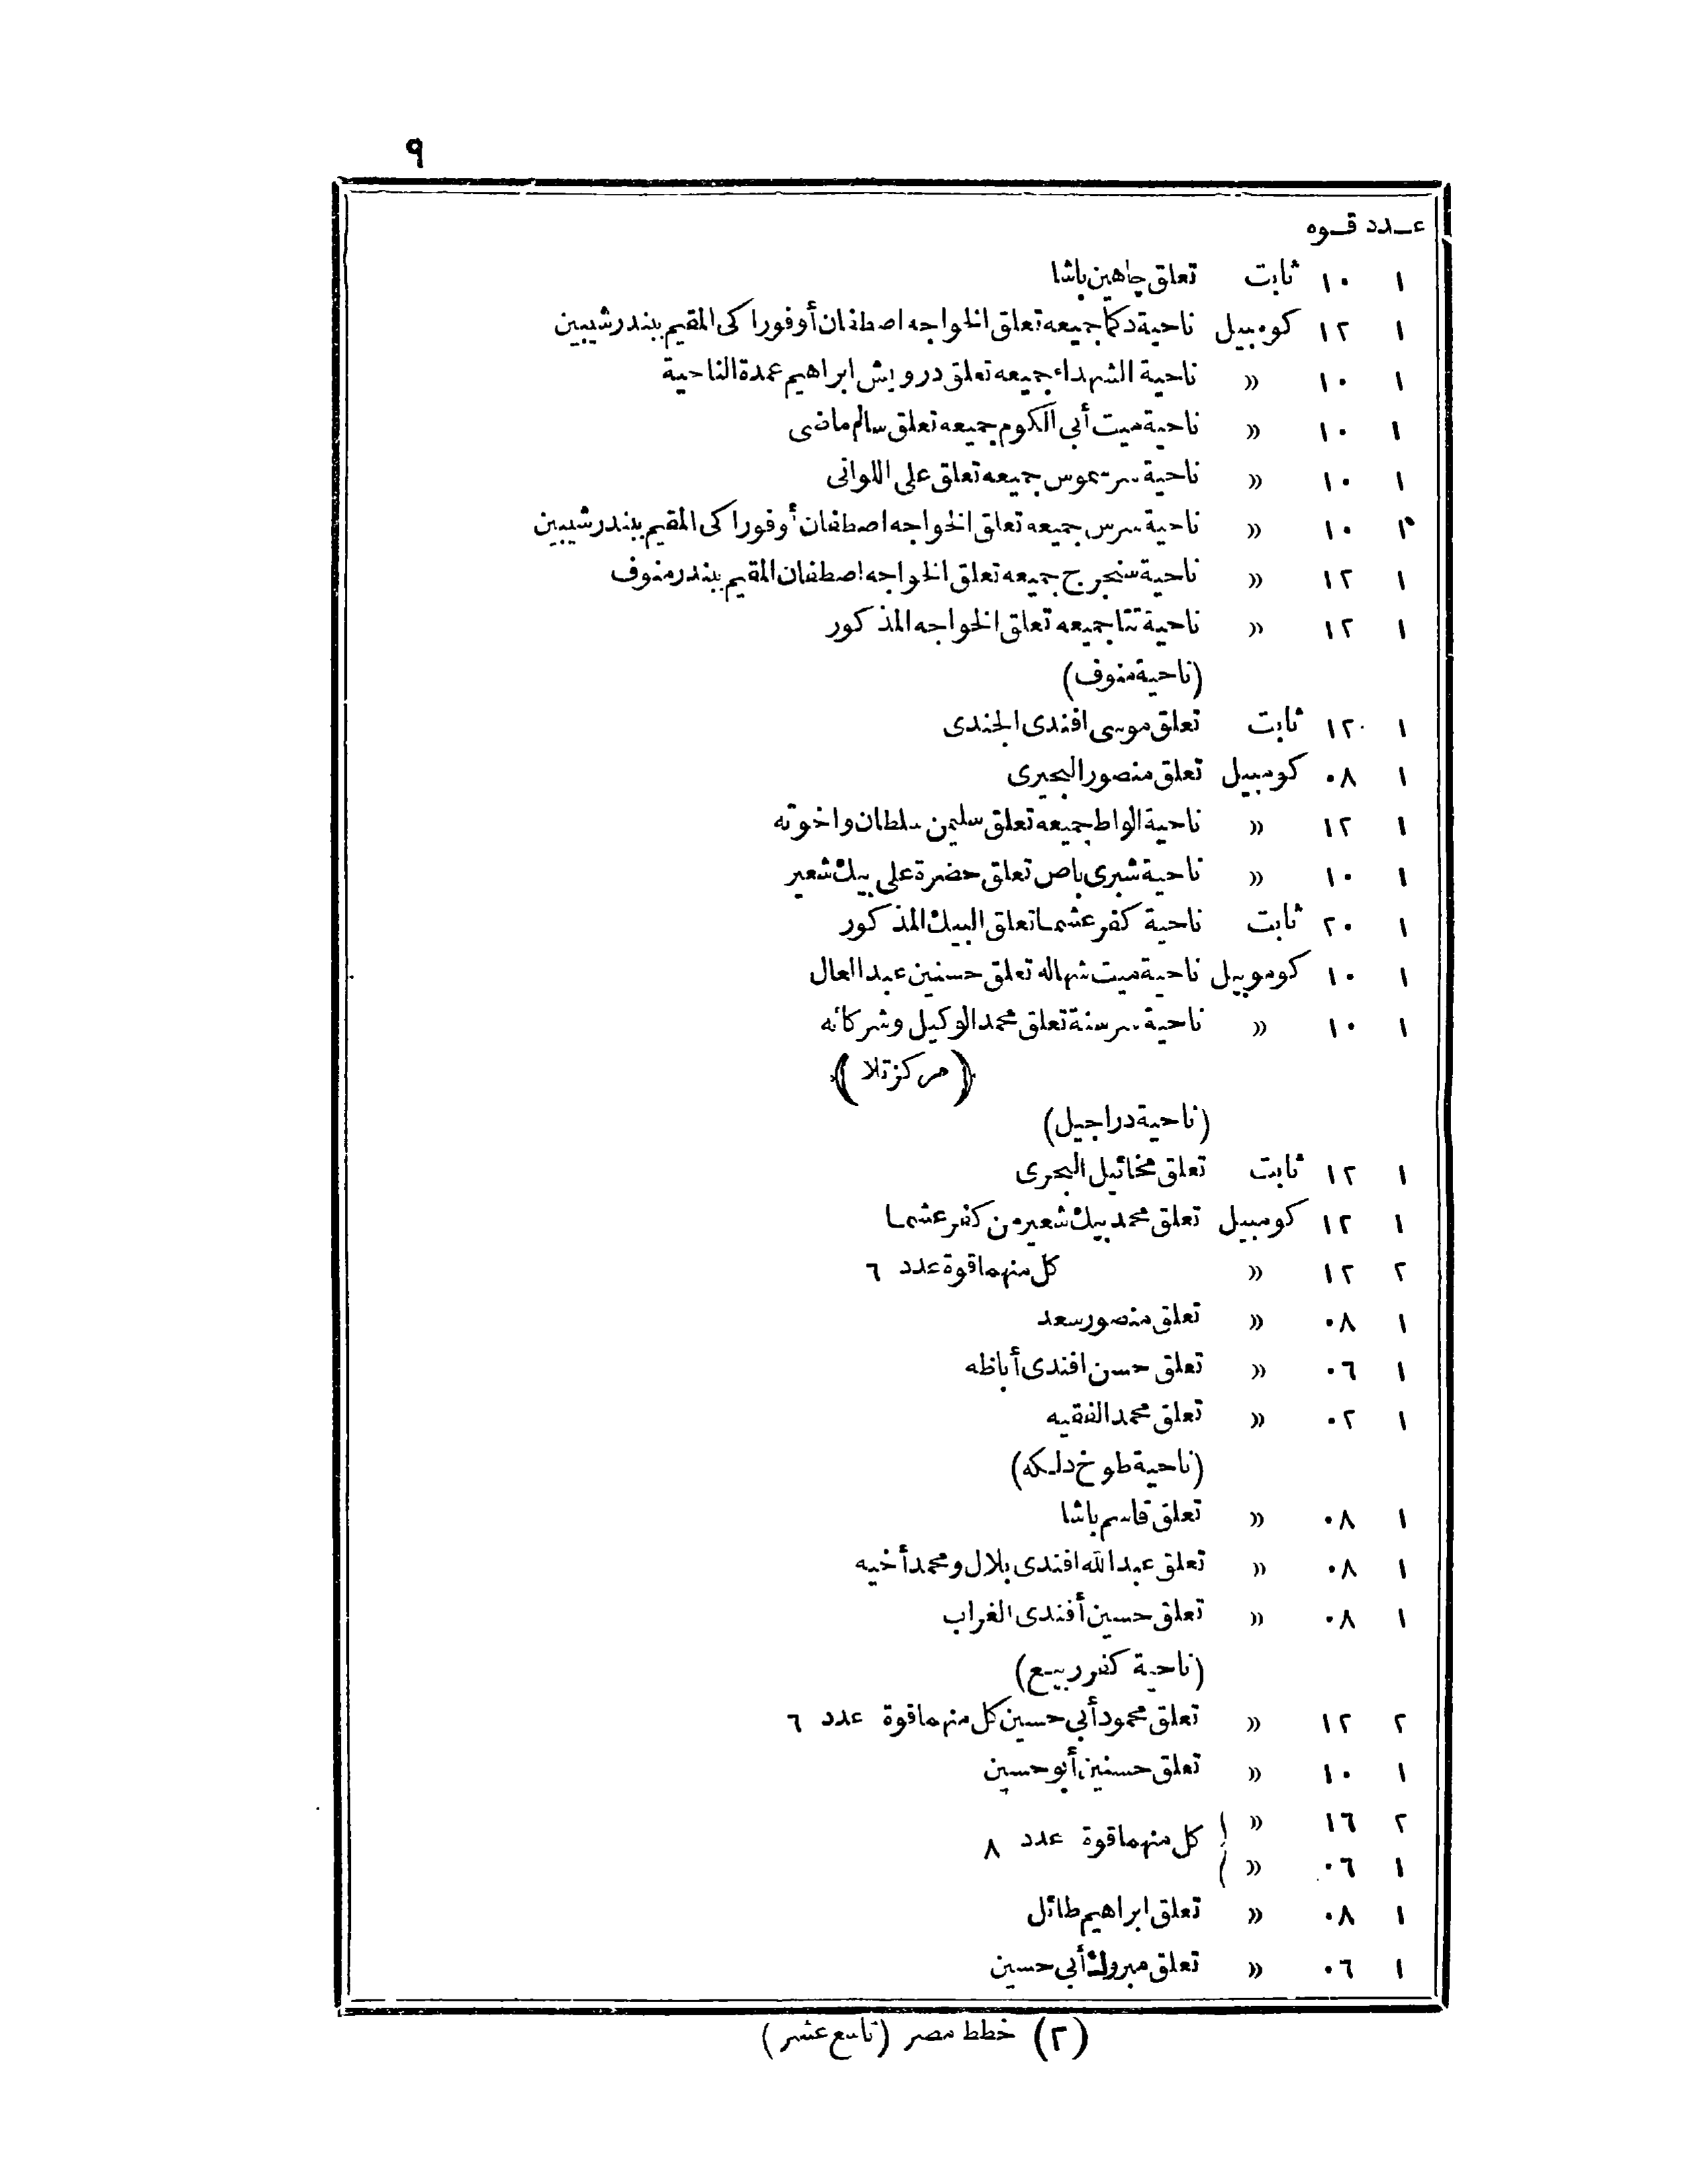 ٩
عدد قوه
١ ١٠ ثابت تعلق چاهين باشا
١ ١٢ كومبيل ناحية دكما جميعه تعلق الخواجه اصطفان أوفوراكى المقيم ببندر شيبين
١ ١٠ » ناحية الشهداء جميعه تعلق درويش ابراهيم عمدة الناحية
١ ١٠ » ناحية ميت أبى الكوم جميعه تعلق سالم ماضى
١ ١٠ » ناحية سرسموس جميعه تعلق على اللوانى
١ ١٠ » ناحية سرس جميعه تعلق الخواجه اصطفان أوفوراكى المقيم ببندر شيبين
١ ١٢ » ناحية سنجرج جميعه تعلق الخواجه اصطفان المقيم ببندر منوف
١ ١٢ » ناحية تتا جميعه تعلق الخواجه المذكور
(ناحية منوف)
١ ١٢ ثابت تعلق موسى افندى الجندى
١ ٠٨ كومبيل تعلق منصور البحيرى
١ ١٢ » ناحية الواط جميعه تعلق سليمن سلطان واخوته
١ ١٠ » ناحية شبرى باص تعلق حضرة على بيك شعير
١ ٢٠ ثابت ناحية كفر عشما تعلق البيك المذكور
١ ١٠ كوموبيل ناحية ميت شهاله تعلق حسنين عبد العال
١ ١٠ » ناحية سرسنة تعلق محمد الوكيل وشركائه
(مركز تلا)
(ناحية دراجيل)
١ ١٢ ثابت تعلق مخائيل البحرى
١ ١٢ كومبيل تعلق محمد بيك شعير من كفر عشما
٢ ١٢ » كل منهما قوة عدد ٦
١ ٠٨ » تعلق منصور سعد
١ ٠٦ » تعلق حسن افندى أباظه
١ ٠٢ » تعلق محمد الفقيه
(ناحية طوخ دلكه)
١ ٠٨ » تعلق قاسم باشا
١ ٠٨ » تعلق عبد الله افندى بلال ومحمد أخيه
١ ٠٨ » تعلق حسين أفندى الغراب
(ناحية كفر ربيع)
٢ ١٢ » تعلق محمود أبى حسين كل منهما قوة عدد ٦
١ ١٠ » تعلق حسنين أبو حسين
٢ ١٦ » كل منهما قوة عدد ٨
١ ٠٦ »
١ ٠٨ » تعلق ابراهيم طائل
١ ٠٦ » تعلق مبروك أبى حسين
(٢) خطط مصر (تاسع عشر)